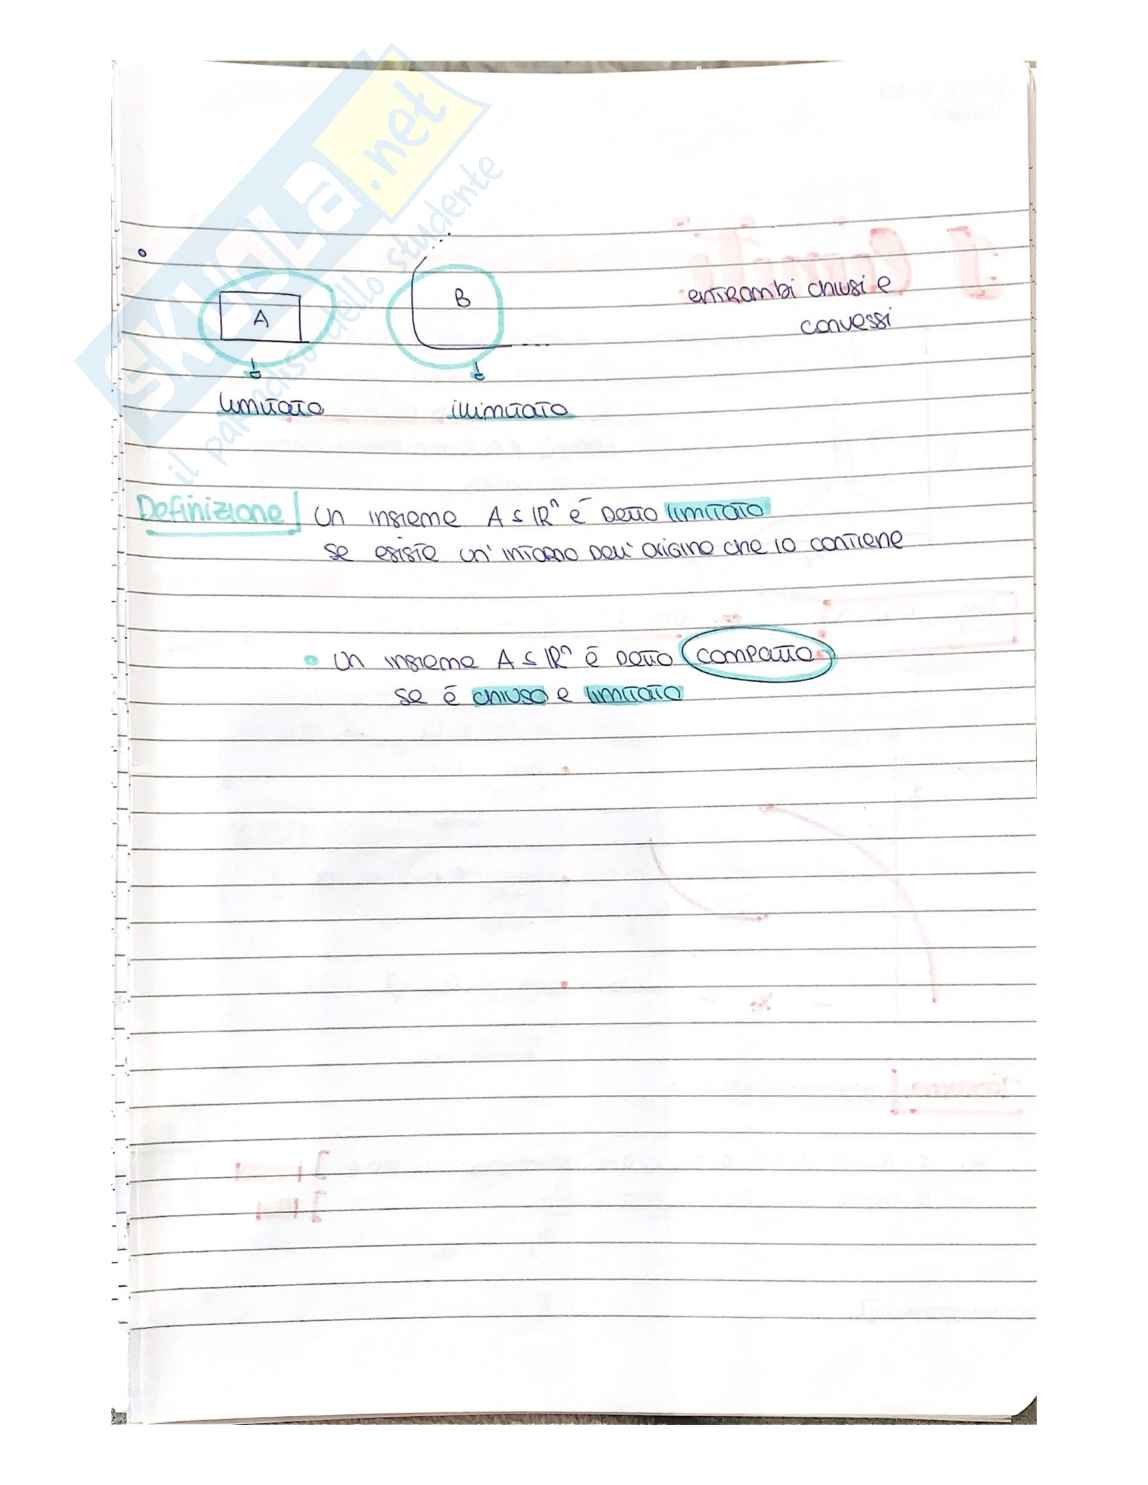 SKUOLA.net
il paradiso dello studente
A
B
entrambi chiusi e
convessi
limitato
illimitato
Definizione
Un insieme A ⊆ ℝⁿ è detto limitato
se esiste un' intorno dell' origine che lo contiene
• Un insieme A ⊆ ℝⁿ è detto compatto
se è chiuso e limitato